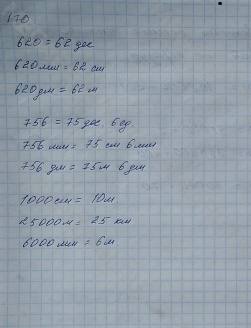 170
620 = 62 дес
620 мм = 62 см
620 дм = 62 м
756 = 75 дес. 6 ед
756 мм = 75 см 6 мм
756 дм = 75 м 6 дм
1000 см = 10 м
25000 м = 25 км
6000 мм = 6 м